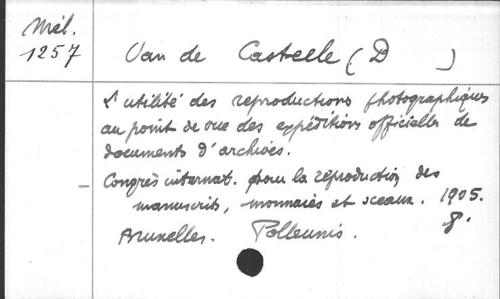 Mél.
1257
Van de Casteele (D )
L'utilité des reproductions photographiques
au point de vue des expéditions officielles de
documents d'archives.
– Congrès internat. pour la reproduction des
manuscrits, monnaies et sceaux. 1905.
Bruxelles. Polleunis. 8.